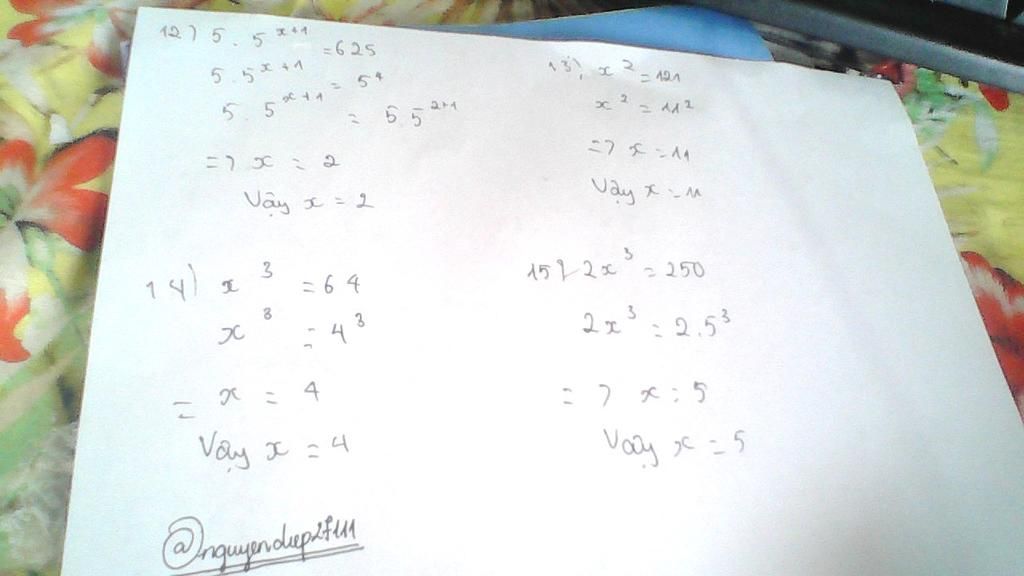 12) 5 . 5^{x+1} = 625
5 . 5^{x+1} = 5^4
5 . 5^{x+1} = 5 . 5^{2+1}
=> x = 2
Vậy x = 2
13) x^2 = 121
x^2 = 11^2
=> x = 11
Vậy x = 11
14) x^3 = 64
x^3 = 4^3
= x = 4
Vậy x = 4
15) 2x^3 = 250
2x^3 = 2.5^3
=> x = 5
Vậy x = 5
@nguyendiep27111